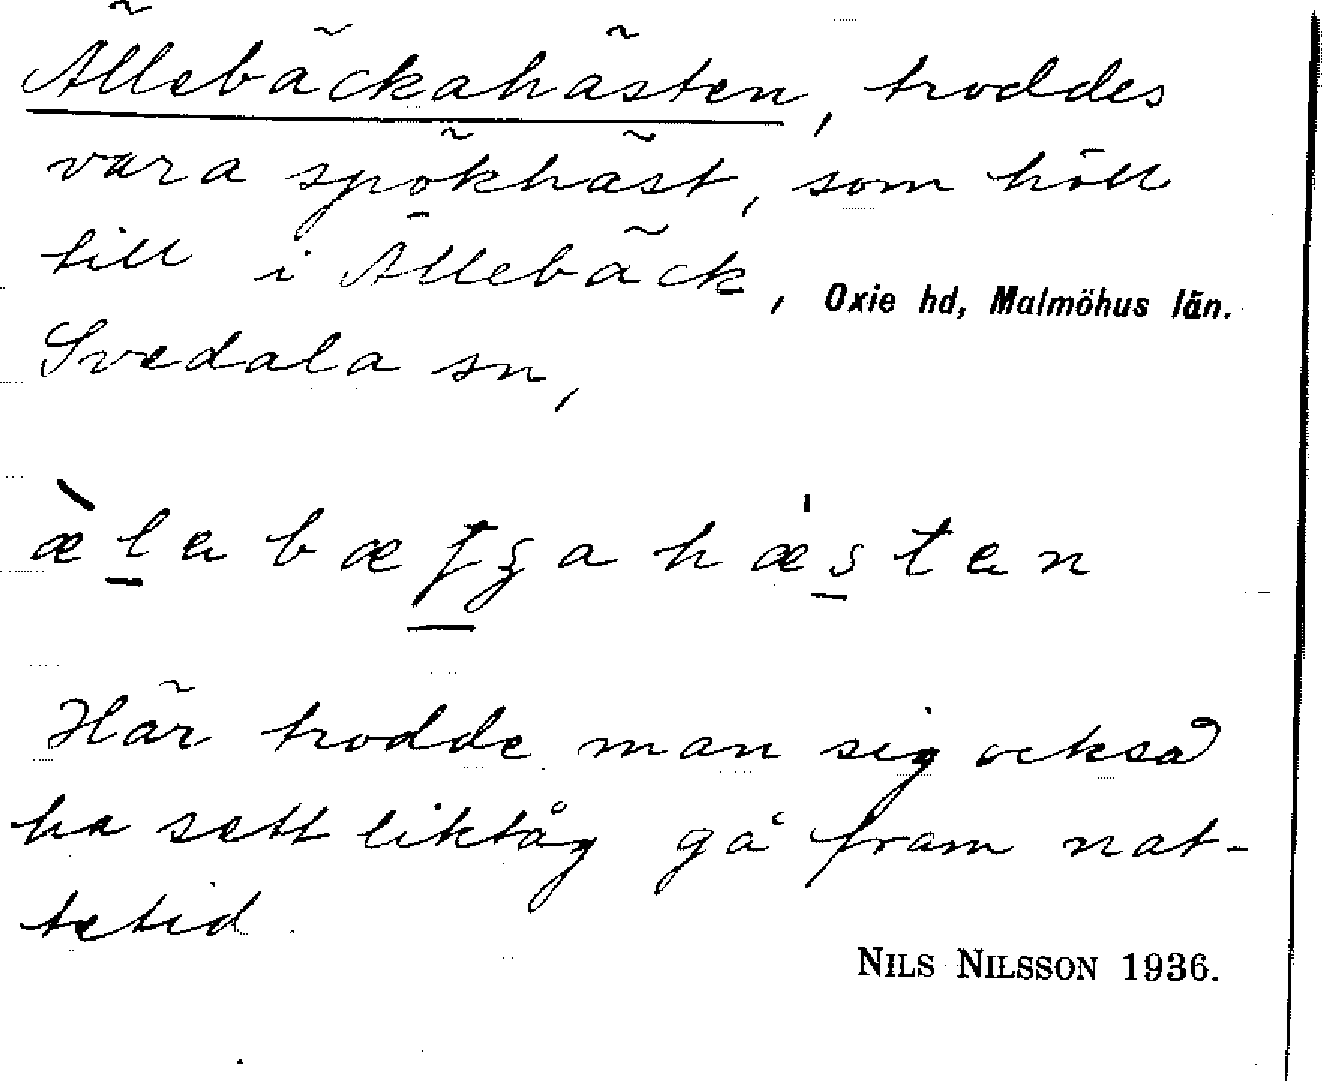 Ällebäckahästen, troddes
vara spökhäst, som höll
till i Ällebäck, Oxie hd, Malmöhus län.
Svedala sn,
Här trodde man sig också
ha sett liktåg gå fram nat-
tetid.
NILS NILSSON 1936.